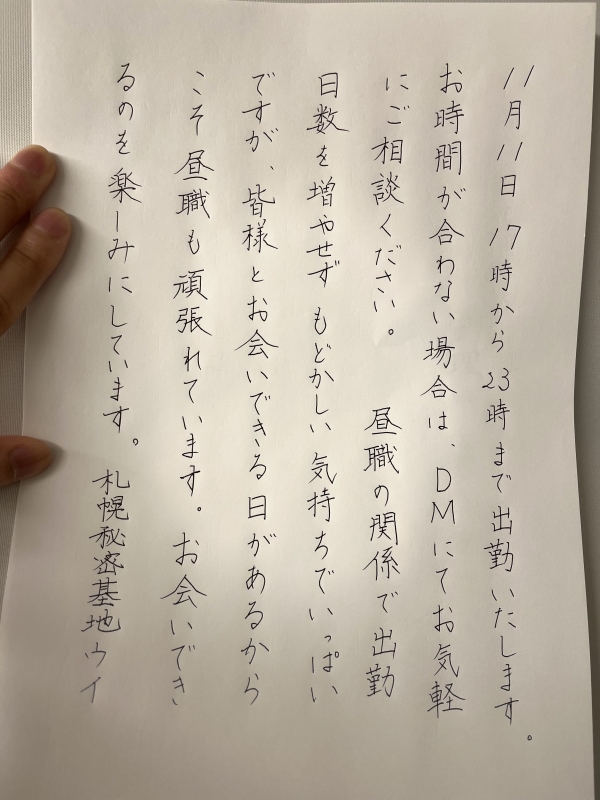 11月11日 17時から23時まで出勤いたします。
お時間が合わない場合は、DMにてお気軽
にご相談ください。 昼職の関係で出勤
日数を増やせずもどかしい気持ちでいっぱい
ですが、皆様とお会いできる日があるから
こそ昼職も頑張れています。お会いでき
るのを楽しみにしています。 札幌秘密基地ウイ